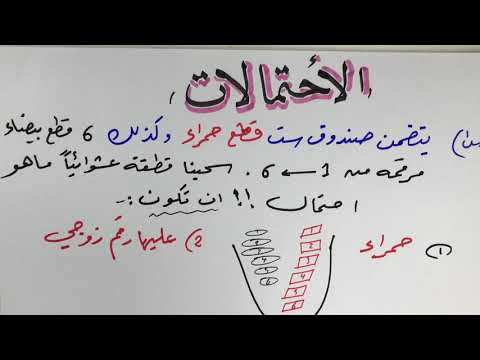 الاحتمالات
س١) يتضمن صندوق ست قطع حمراء وكذلك 6 قطع بيضاء
مرقمة من 1 ← 6. سحبنا قطعة عشوائياً ماهو
احتمال !! ان تكون :-
١) حمراء 2) عليها رقم زوجي